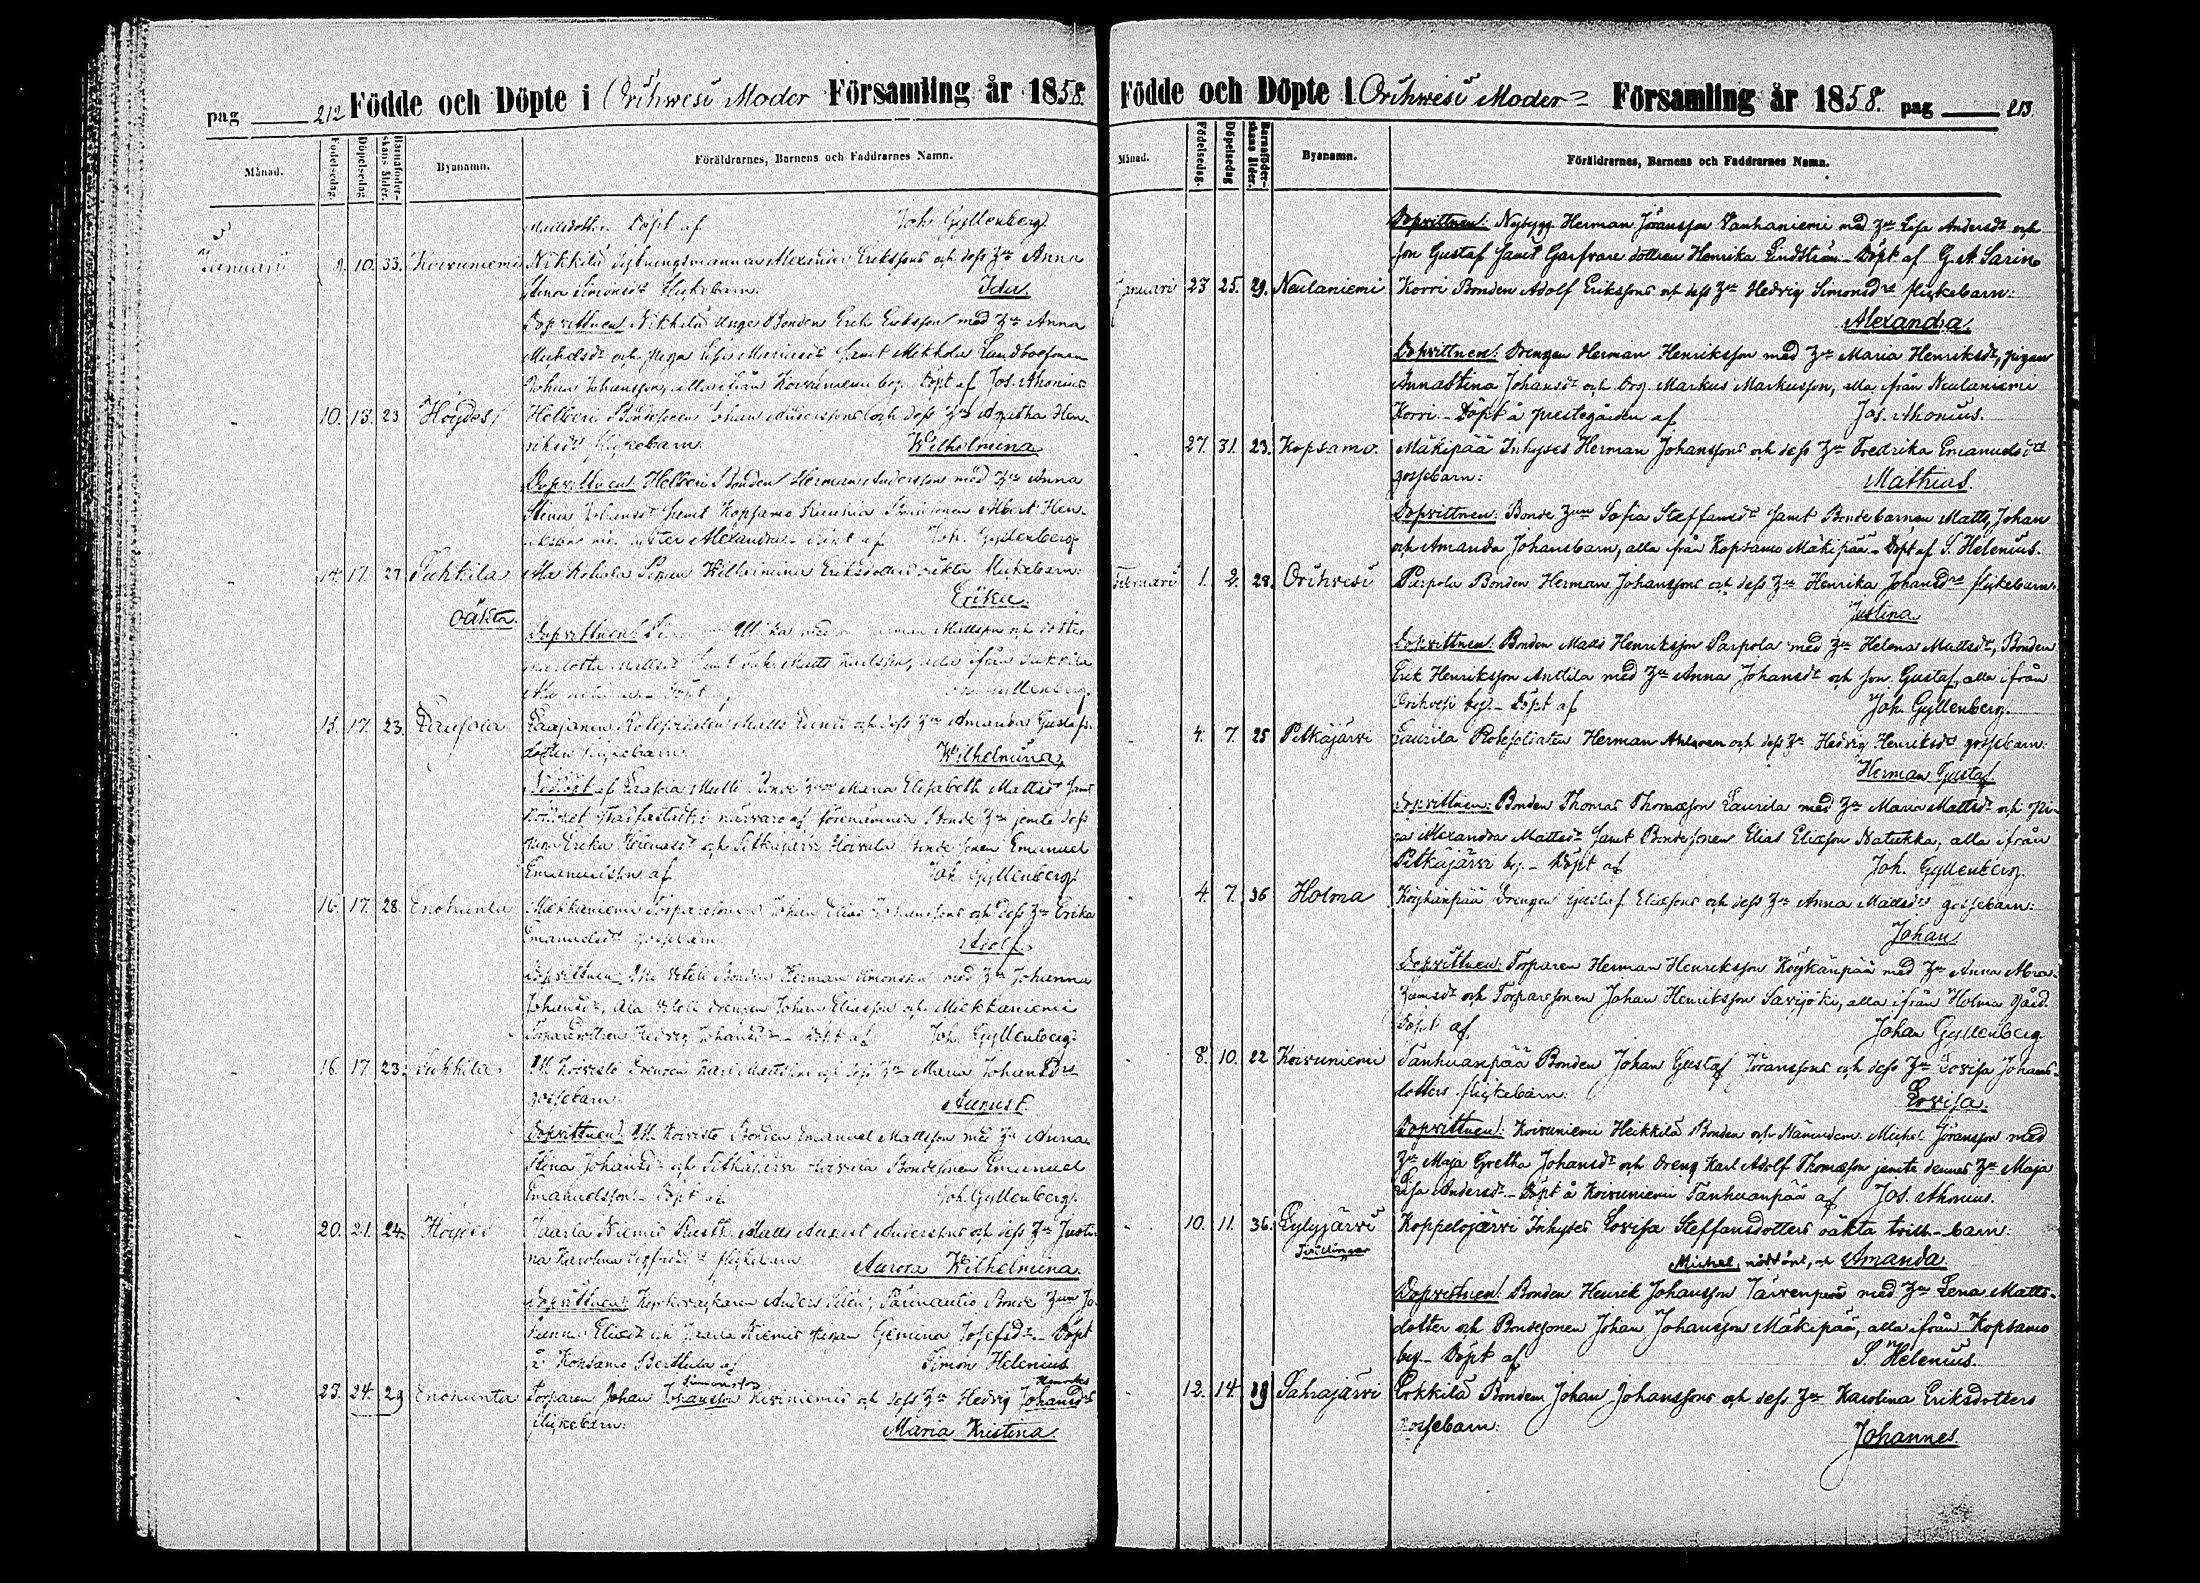 pag 212 Födde och Döpte i Orihwesi Moder Församling år 1858.
Månad. Födelsedag. Döpelsedag Barnaföderskans ålder. Byanamn. Föräldrarnes, Barnens och Faddrarnes Namn.
Mattsdotter. Döpt af Joh. Gyllenberg.
Januari 8. 10. 33. Koivuniemi Nikkilä Alexander Erikssons och dess Hu Anna
Stina Simonsdr flickebarn: Ida.
Dopvittnen: Nikkilä unge Bonden Erik Eriksson med Hu Anna
Michelsdr och piga Lisa Mariasdr samt Mikkola Landbosonen
Johan Johansson, alla ifrån Koivuniemi by. Döpt af Jos. Ahonius
10. 13. 23 Höydes Helberi Bondesonen Johan Anderssons och dess Hu Agatha Hen-
riksdr flickebarn: Wilhelmina
Dopvittnen: Helberi Bonden Herman Andersson med Hu Anna
Stina Johansdr samt Kopsamo Bondesonen Albert Hen-
riksson med syster Alexandra. Döpt af Joh. Gyllenberg
14. 17. 27. Sukkila Ala Pigan Wilhelmina Eriksdotters oäkta flickebarn:
oäkta. Erika.
Dopvittnen: Ulrika med Herman Mattsson och dotter
Mattsdr samt Matts Karlsson, alla ifrån Sukkila
Döpt af Joh. Gyllenberg.
15. 17. 23. Paasoia Rotesoldaten Matts och dess Hu Amanda Gustafs-
dotters flickebarn: Wilhelmina
Nöddöpt af Paasoia Bonde Hun Maria Elisabeth Mattsdr samt
stadfästadt i närvaro af förenämnda Bonde Hu jemte dess
piga Erika och Pitkäjärvi Hoivala Bonde sonen Emanuel
Emanuelsson af Joh. Gyllenberg.
16. 17. 28. Enokunta Mickkaniemi Torparesonen Johan Elias Johanssons och dess Hu Erika
Emanuelsdrs gossebarn: Adolf.
Dopvittnen: Bonden Herman Simonsson med Hu Johanna
Johansdr, Ala drengen Johan Eliasson och Mickkaniemi
Torparedottren Hedvig Johansdr. Döpt af Joh. Gyllenberg.
16. 17. 23. Sukkila Koivisto Drengen Karl Mattssons och dess Hu Maria Johansdrs
gossebarn: August.
Dopvittnen: Koivisto Bonden Emanuel Mattsson med Hu Anna
Stina Johansdr och Pitkäjärvi Hoivala Bondesonen Emanuel
Emanuelsson. Döpt af Joh. Gyllenberg.
20. 21. 24. Höydes Haarla Niemis Matts August Anderssons och dess Hu Justi-
na Karolina Sigfridsdrs flickebarn: Aurora Wilhelmina.
Dopvittnen: Kyrkoväktaren Anders Bonde Hun Jo-
hanna Eliædr och Haarla Niemis pigan Gemina Josefsdr. Döpt
å Kopsamo Berttula af Simon Helenius
23. 24. 29 Enokunta Torparen Johan Johansson Simonsson Kiviniemis och dess Hu Hedvig Johansdrs Henriks
flickebarn: Maria Kristina.

Födde och Döpte i Orihwesi Moder- Församling år 1858. pag 213.
Månad. Födelsedag. Döpelsedag Barnaföderskans ålder. Byanamn. Föräldrarnes, Barnens och Faddrarnes Namn.
Dopvittnen: Nybygg. Herman Jöransson Vanhaniemi med Hu Lisa Andersdr och
son Gustaf samt Garfvare dottren Henrika Lindström. Döpt af G. A. Sarin
Januari 23 25. 29. Neulaniemi Korri Bonden Adolf Erikssons och dess Hu Hedvig Simonsdrs flickebarn:
Alexandra.
Dopvittnen: Drengen Herman Henriksson med Hu Maria Henriksdr, pigan
Annastina Johansdr och drg. Markus Markusson, alla ifrån Neulaniemi
Korri. Döpt å prestegården af Jos. Ahonius.
27. 31. 23. Kopsamo. Mäkipää Inhyses Herman Johanssons och dess Hu Fredrika Emanuelsdrs
gossebarn: Mathias.
Dopvittnen: Bonde Hun Sofia Steffansdr samt Bondebarnen Matts, Johan
och Amanda Johansbarn, alla ifrån Kopsamo Mäkipää. Döpt af S. Helenius.
Februari 1. 2. 28. Orihvesi Parpola Bonden Herman Johanssons och dess Hu Henrika Johansdrs flickebarn:
Justina.
Dopvittnen: Bonden Matts Henriksson Parpola med Hu Helena Mattsdr, Bonden
Erik Henriksson Anttila med Hu Anna Johansdr och son Gustaf, alla ifrån
Orihvesi by. Döpt af Joh. Gyllenberg.
4. 7. 25 Pitkäjärvi Laurila Rotesoldaten Herman Ahlgren och dess Hu Hedvig Henriksdrs gossebarn:
Herman Gustaf.
Dopvittnen: Bonden Thomas Thomasson Laurila med Hu Maria Mattsdr och pi-
ga Alexandra Mattsdr samt Bondesonen Elias Eliæson Natukka, alla ifrån
Pitkäjärvi by. Döpt af Joh. Gyllenberg.
4. 7. 36 Holma Köykänpää Drengen Gustaf Eliæsons och dess Hu Anna Mattsdrs gossebarn:
Johan.
Dopvittnen: Torparen Herman Henriksson Köykänpää med Hu Anna Abra-
hamsdr och Torparesonen Johan Henriksson Savijoki, alla ifrån Holma gård.
Döpt af Johan Gyllenberg.
8. 10. 22 Koivuniemi Tanhuanpää Bonden Johan Gustaf Jöranssons och dess Hu Lovisa Johans-
dotters flickebarn: Lovisa.
Dopvittnen: Koivuniemi Heikkilä Bonden och Nämndem. Michel Jöransson med
Hu Maja Gretha Johansdr och dreng Karl Adolf Thomasson jemte dennes Hu Maja
Lisa Andersdr. Döpt å Koivuniemi Tanhuanpää af Jos. Ahonius.
10. 11. 36. Lylyjärvi Koppelojärvi Inhyses Lovisa Steffansdotters oäkta tvill-barn:
Tvillingar Michel, nöddöpt, och Amanda.
Dopvittnen: Bonden Henrik Johansson Järvenpää med Hu Lena Matts-
dotter och Bondesonen Johan Johansson Mäkipää, alla ifrån Kopsamo
by. Döpt af S. Helenius.
12. 14. 29 Sahrajärvi Erkkilä Bonden Johan Johanssons och dess Hu Karolina Eriksdotters
gossebarn: Johannes.